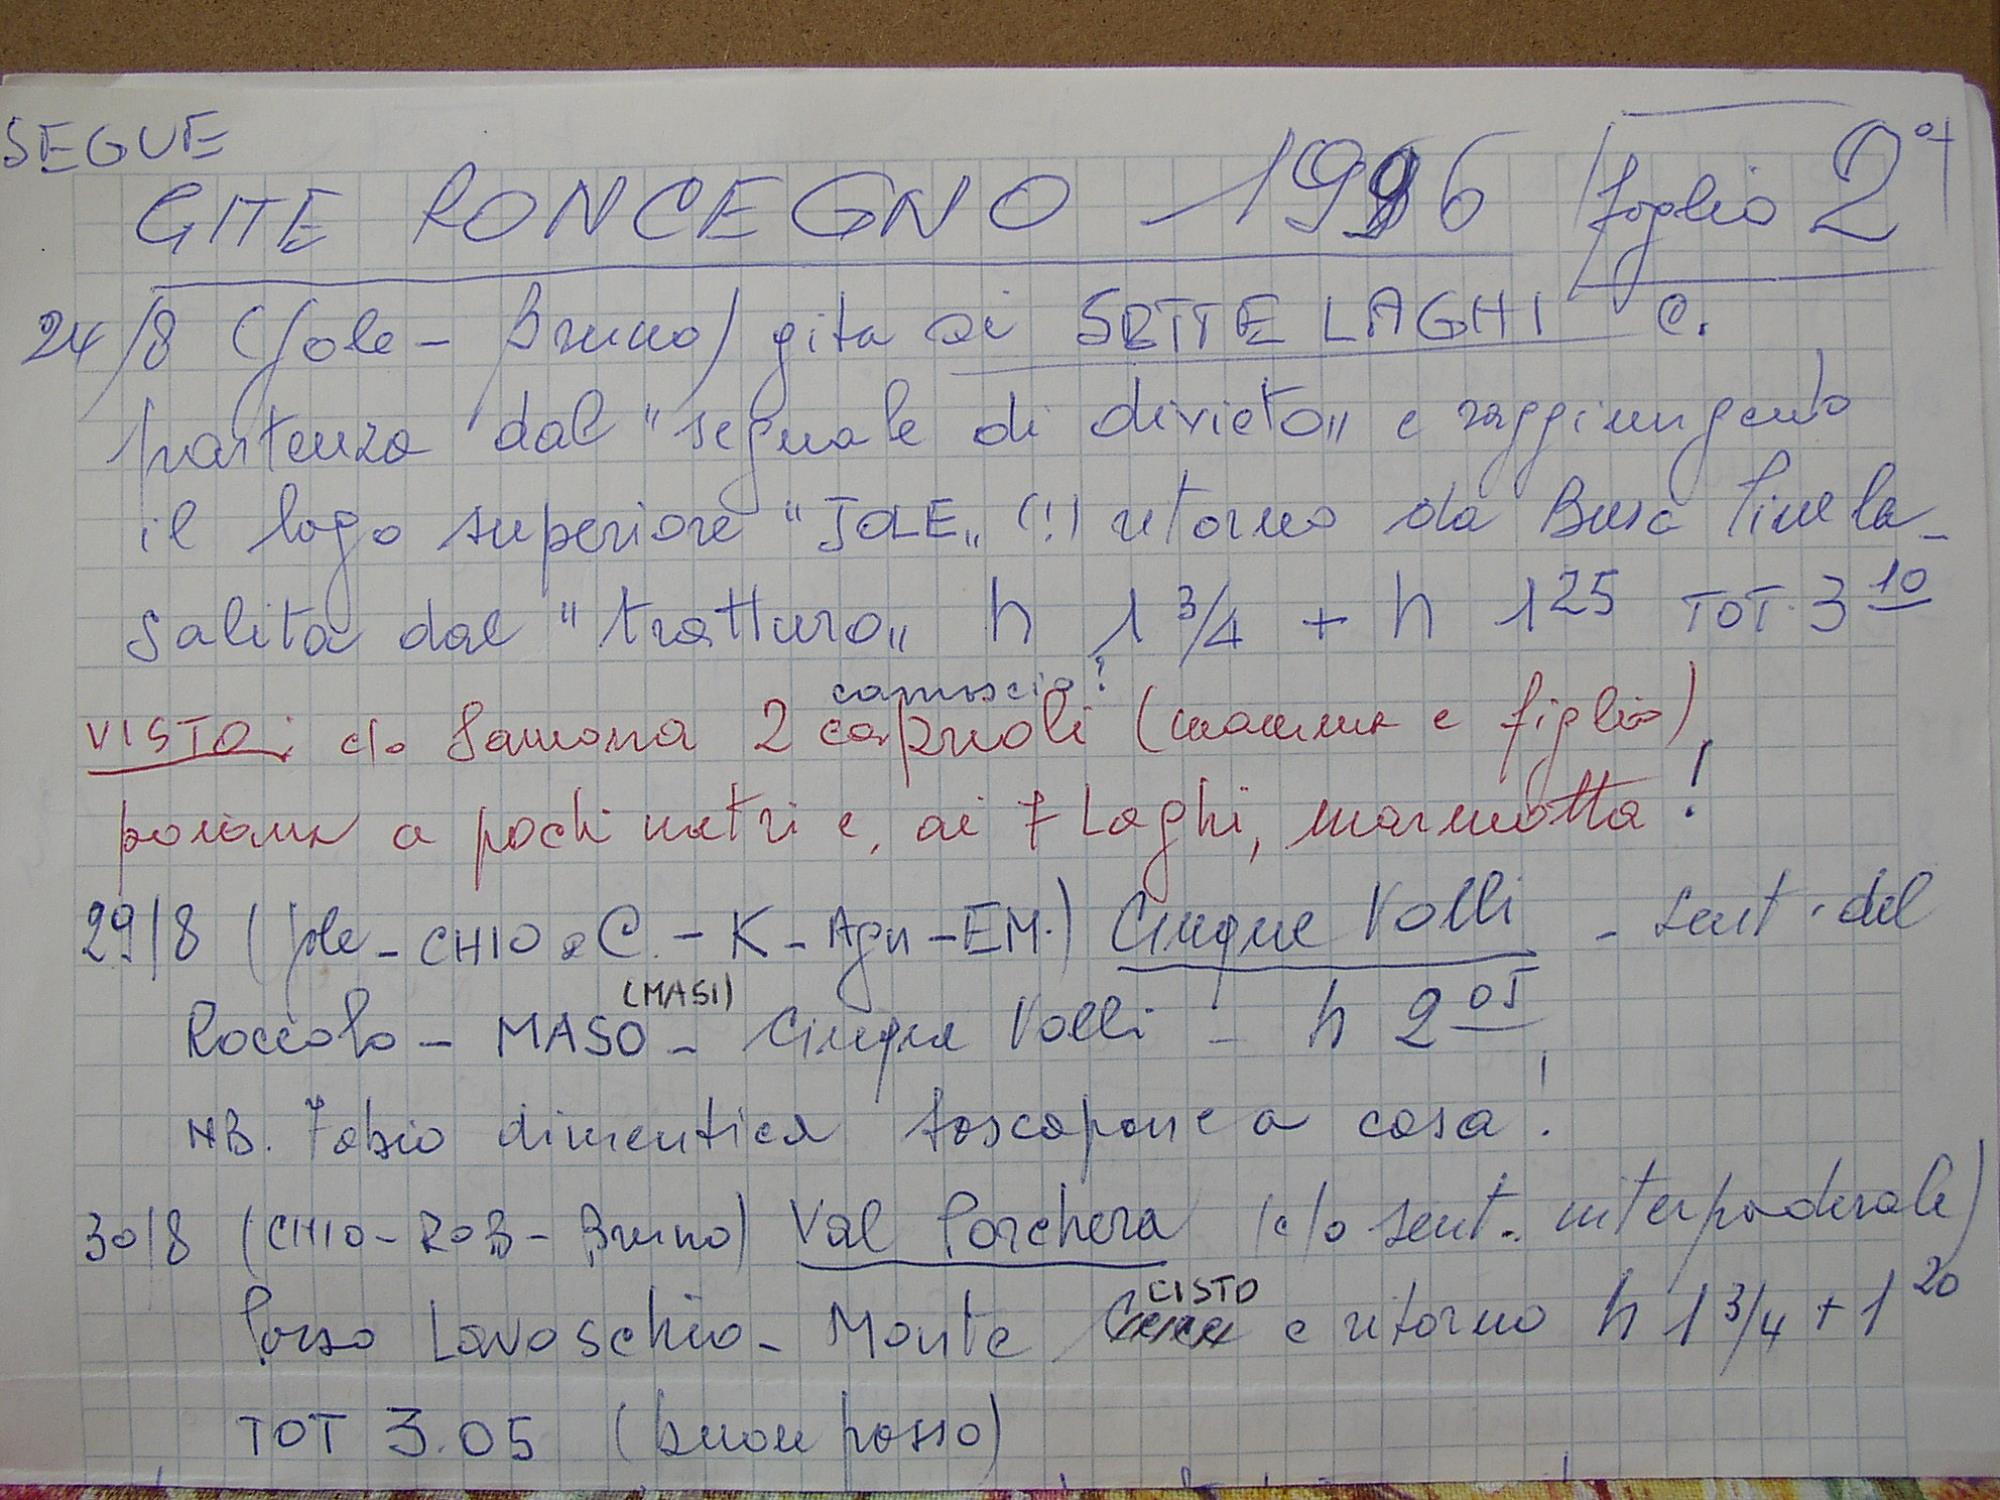 SEGUE
GITE RONCEGNO - 1996 foglio 2°
24/8 (Jole - Bruno) gita ai SETTE LAGHI c.
partenza dal "segnale di divieto" e raggiungendo
il lago superiore "JOLE" (!) ritorno da Busa
salita dal "tratturo" h 1 3/4 + h 1 25 TOT. 3 10
camoscio!
VISTO: c/o Samona 2 caprioli (mamma e figlio)
poiana a pochi metri e, ai 7 Laghi, marmotta!
29/8 (Jole - CHIO e C. - K - Agn - EM.) Cinque Valli - sent. del
(MASI)
Roccolo - MASO - Cinque Valli - h 2 05
NB. Fabio dimentica tascapane a casa!
30/8 (CHIO - ROB - Bruno) Val Porchera (c/o sent. interpoderale)
CISTO
Passo Lavoschio - Monte e ritorno h 1 3/4 + 1 20
TOT 3.05 (buon passo)